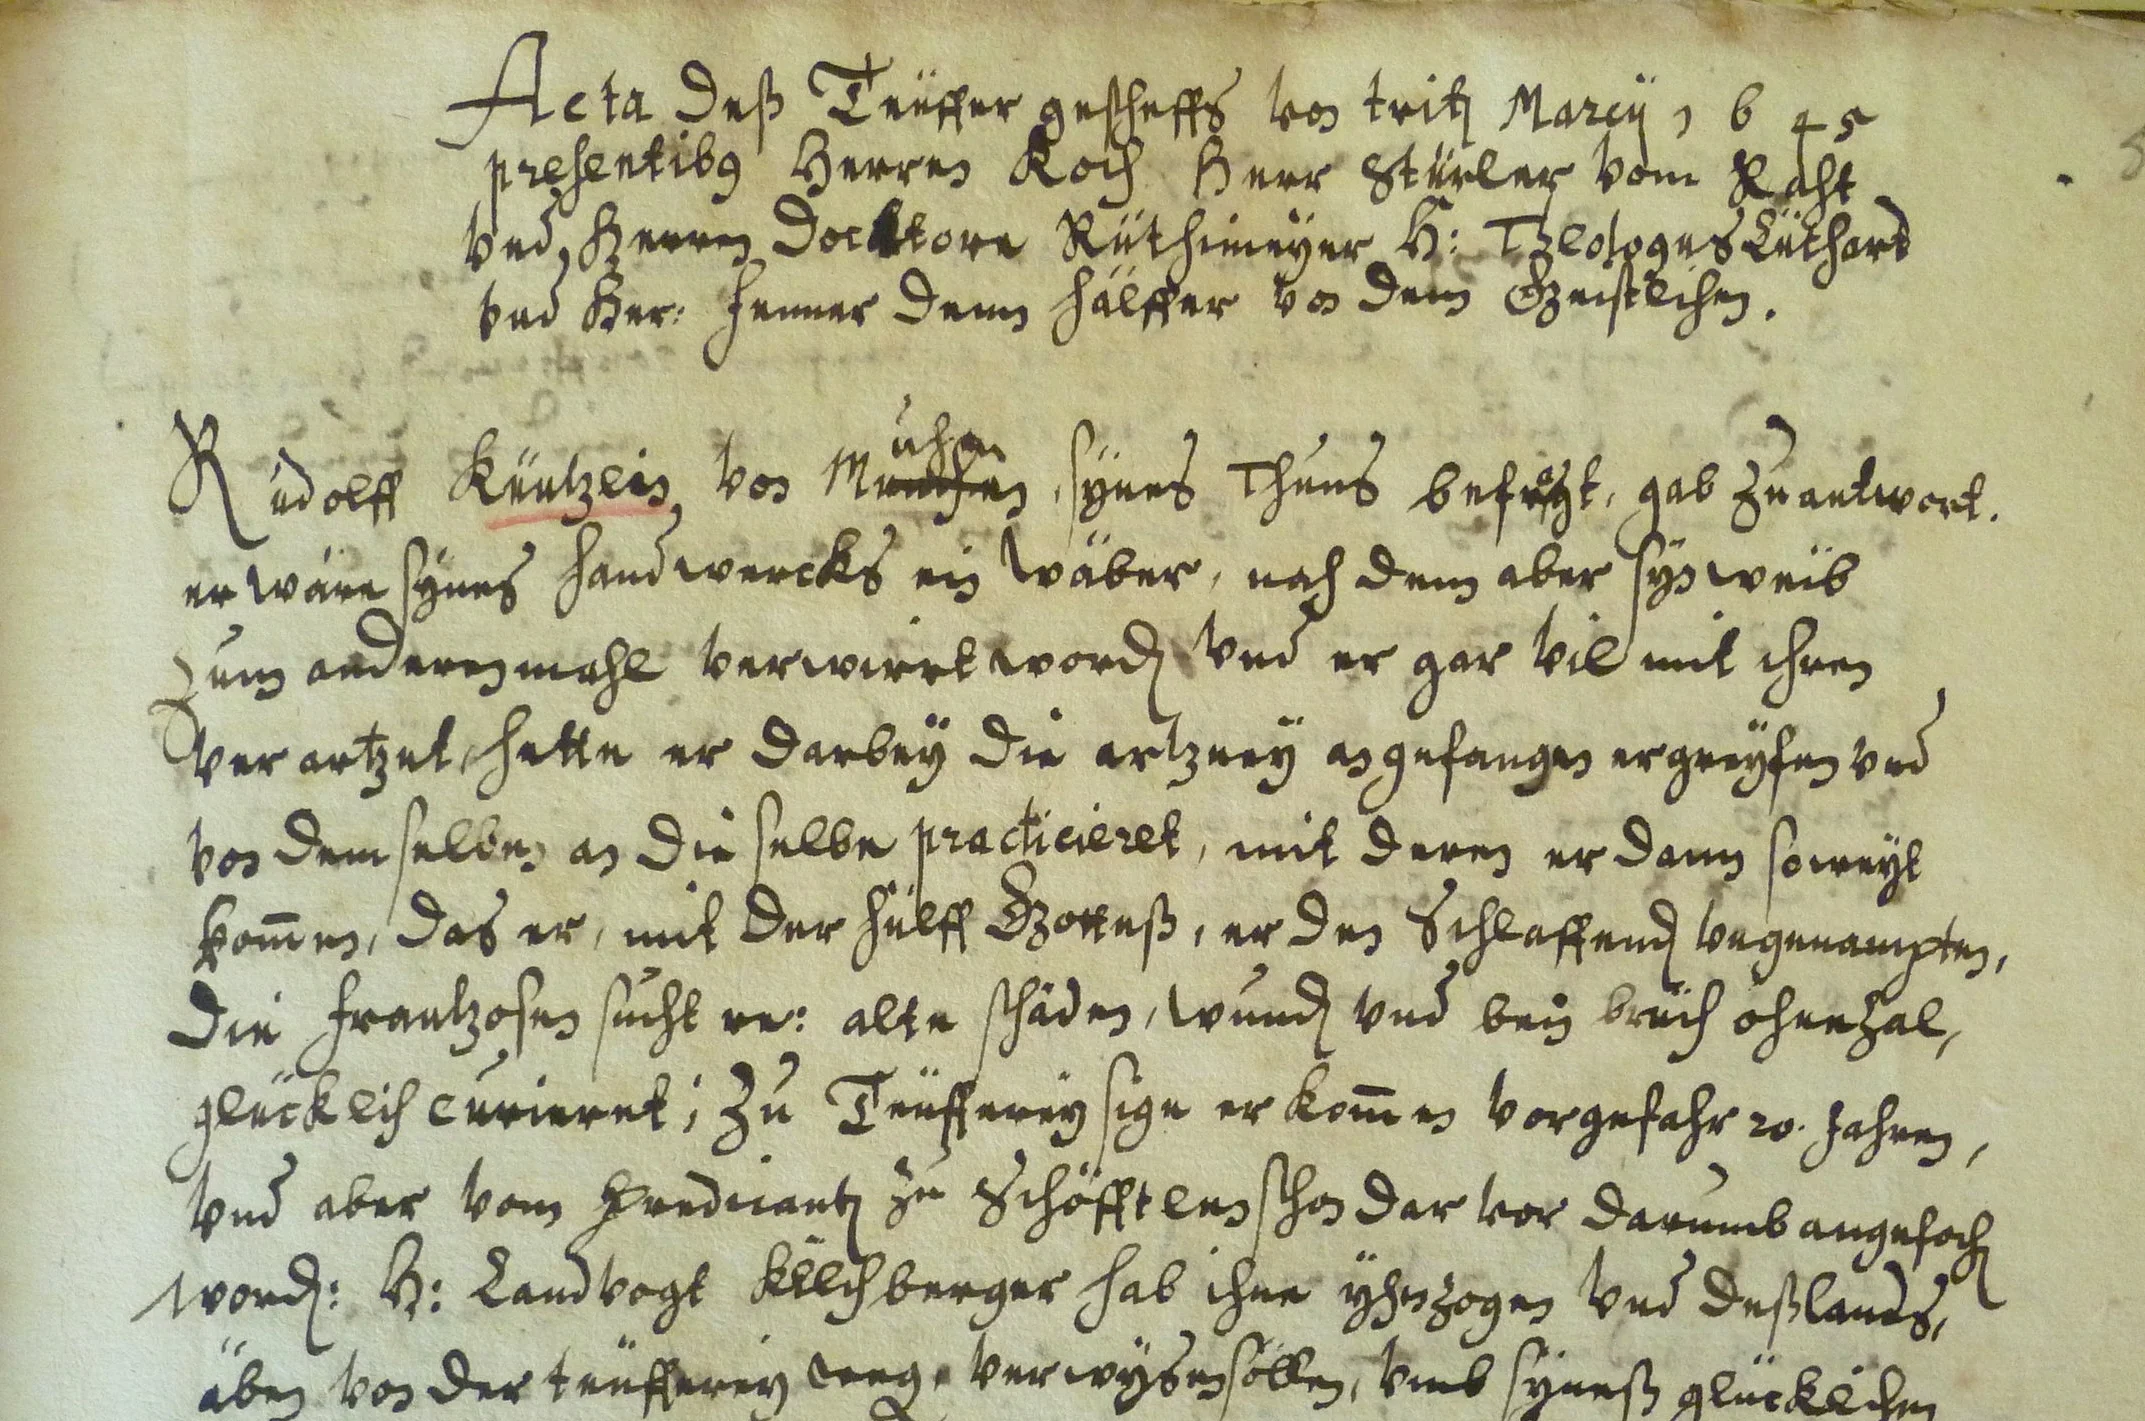 Acta deß Teüffer gescheffs von tritē Marcÿ 1645
presentibꝰ Herren Koch Herr Stürler vom Raht
vnd Herren Docktore Rüthimeÿer H: Theologus Lüthard
vnd Her: Jenner dem hälffer von dem Geistlichen.
Rudolff Küntzlin von Muhen, sÿnes Thuns befragt, gab zu antwort.
er wäre sÿnes handwercks ein wäber, nach dem aber sÿn weib
zum anderen mahl verwirrt wordē vnd er gar vil mit ihren
verartzet, hette er darbeÿ die artzneÿ angefangen ergreÿfen vnd
von demselben an dieselbe practicieret, mit deren er dann so weÿt
kom̄en, das er, mit der hülff Gotteß, er den Schlaffendē vngenampten,
die frantzosen sucht re: alte schäden, wundē vnd bein brüch ohne zal,
glücklich curieret; zu Teüffereÿ sige er kom̄en vor gefahr 20. Jahren,
vnd aber vom predicantē zu Schöfftlen schon dar vor darumb angefochē
wordē: H: Landvogt Kilchberger hab ihne ÿhnzogen vnd deß lands,
äben von der teüffereÿ weg, verwÿsen söllen, vmb sÿneß glücklichen